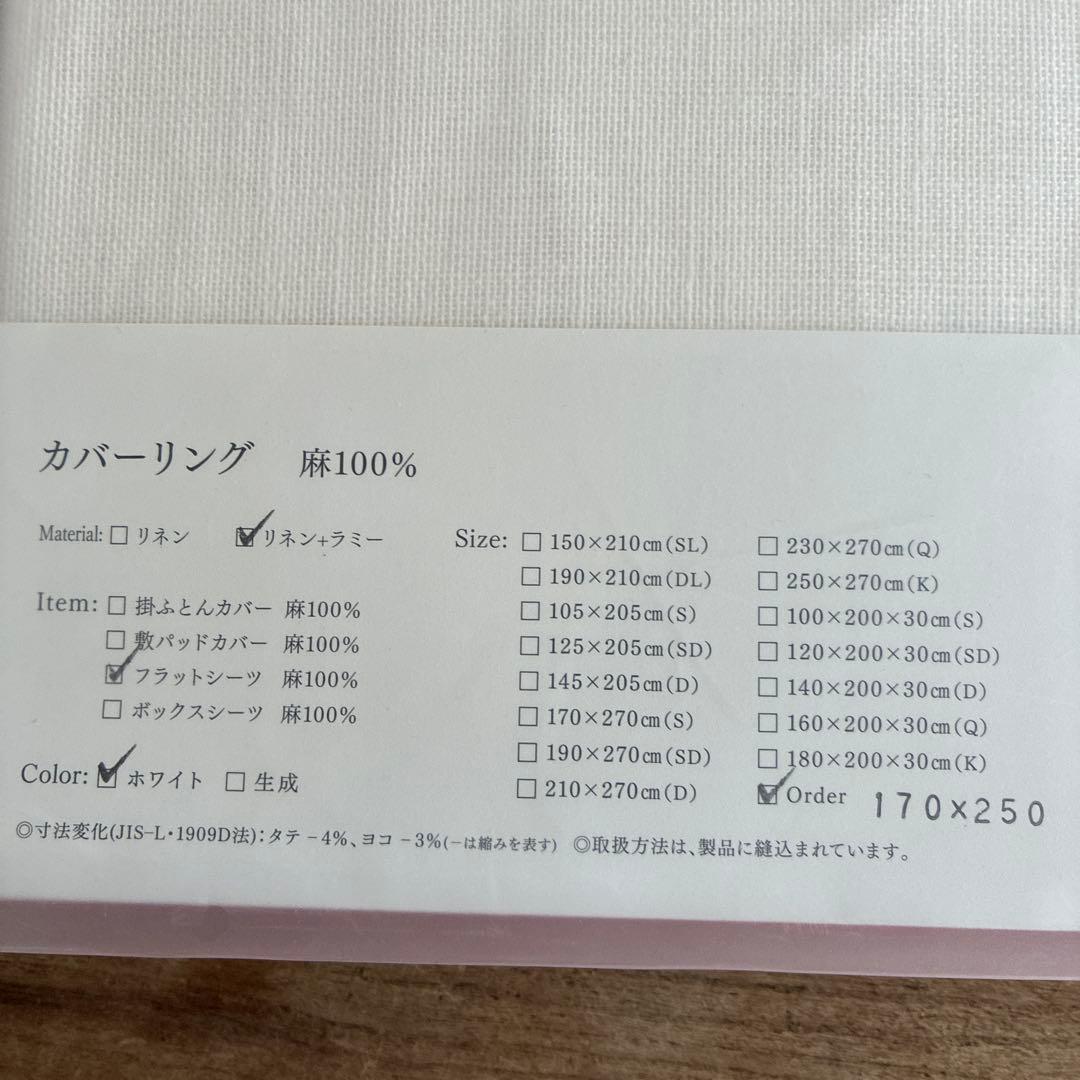 カバーリング 麻100%
Material: □ リネン ☑ リネン+ラミー
Item: □ 掛ふとんカバー 麻100%
□ 敷パッドカバー 麻100%
☑ フラットシーツ 麻100%
□ ボックスシーツ 麻100%
Color: ☑ ホワイト □ 生成
Size: □ 150×210㎝(SL)
□ 190×210㎝(DL)
□ 105×205㎝(S)
□ 125×205㎝(SD)
□ 145×205㎝(D)
□ 170×270㎝(S)
□ 190×270㎝(SD)
□ 210×270㎝(D)
□ 230×270㎝(Q)
□ 250×270㎝(K)
□ 100×200×30㎝(S)
□ 120×200×30㎝(SD)
□ 140×200×30㎝(D)
□ 160×200×30㎝(Q)
□ 180×200×30㎝(K)
☑ Order 170×250
◎寸法変化(JIS-L・1909D法):タテ－4%、ヨコ－3%(－は縮みを表す) ◎取扱方法は、製品に縫込まれています。